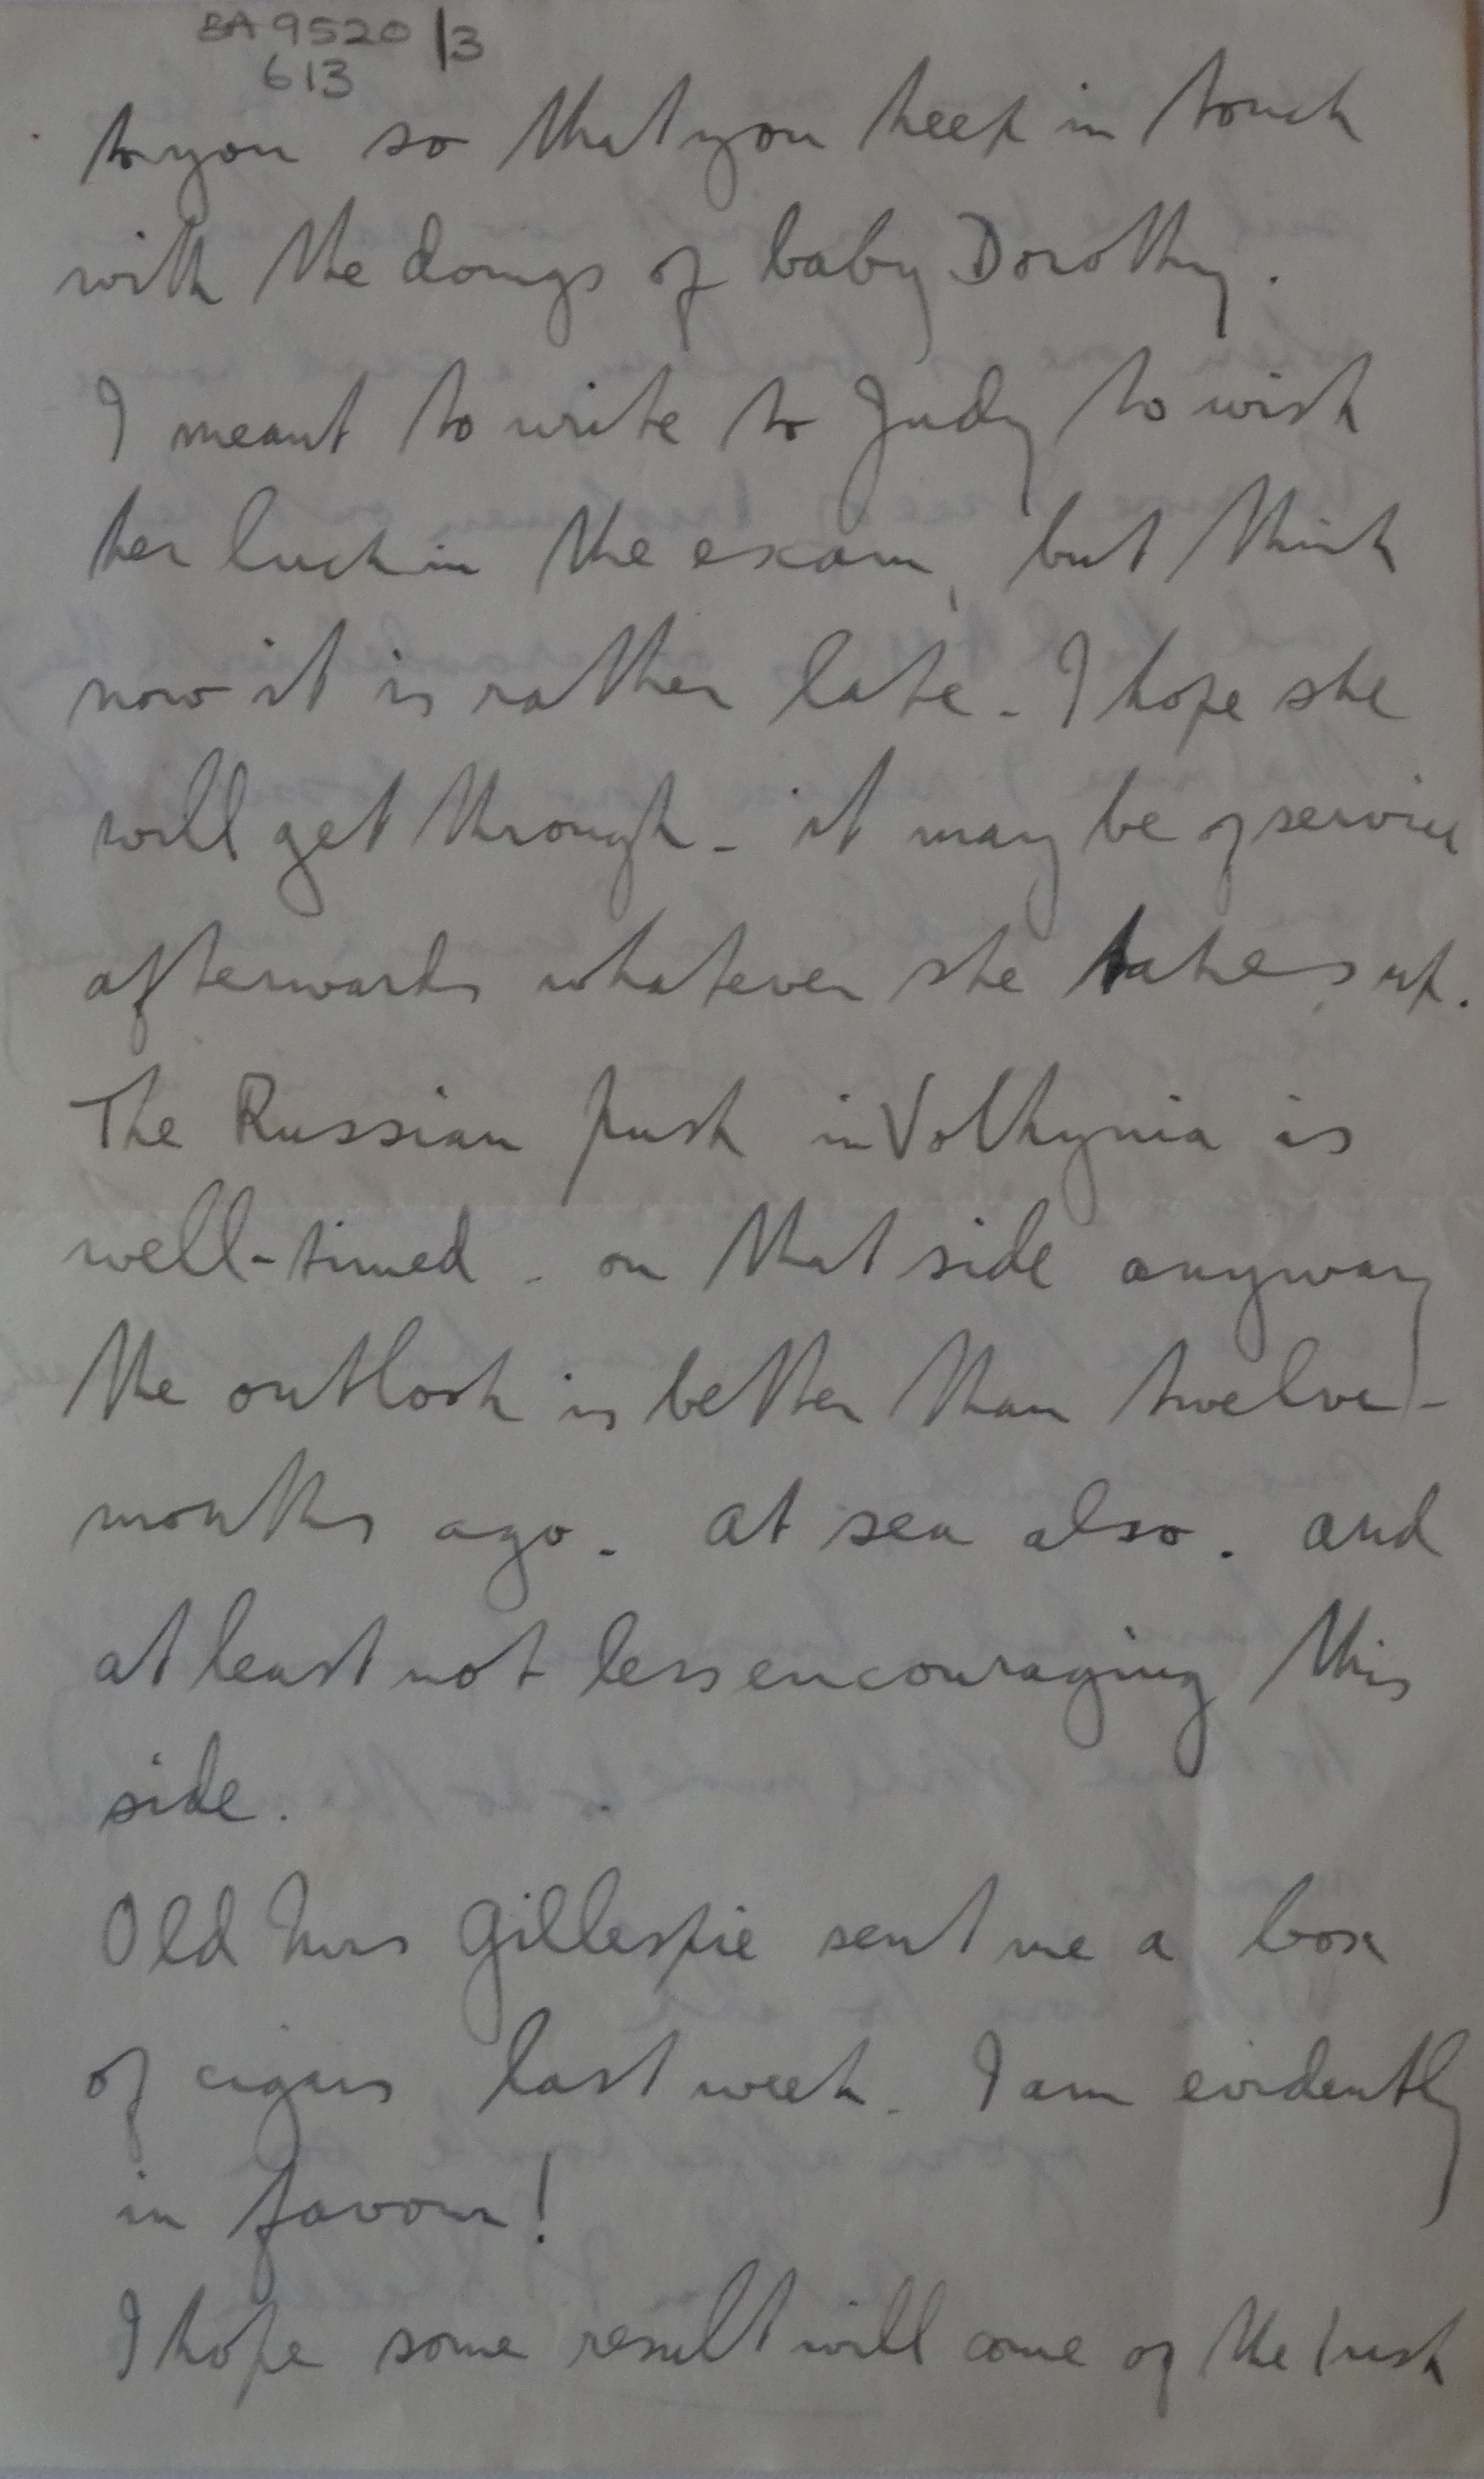 BA 9520/3
613
to you so that you keep in touch
with the doings of baby Dorothy.
I meant to write to Judy to wish
her luck in the exam, but think
now it is rather late. I hope she
will get through - it may be of service
afterwards whatever she takes up.
The Russian push in Volhynia is
well-timed - on that side anyway
the outlook is better than twelve-
months ago. at sea also. and
at least not less encouraging this
side.
Old Mrs Gillespie sent me a box
of cigars last week. I am evidently
in favour!
I hope some result will come of the Irish